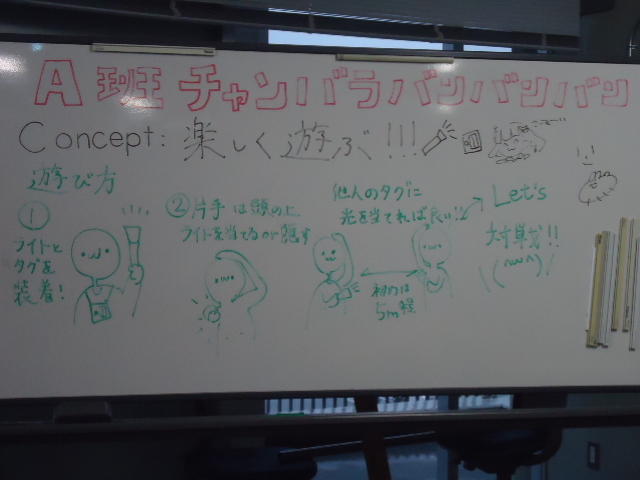 A班 チャンバラバンバンバン
Concept: 楽しく遊ぶ!!!
遊び方
①
ライトと
タグを
装着!
②片手は頭の上
ライトを当てるか隠す
他人のタグに
光を当てれば良い!!
初めは
5m
Let's
対戦!!